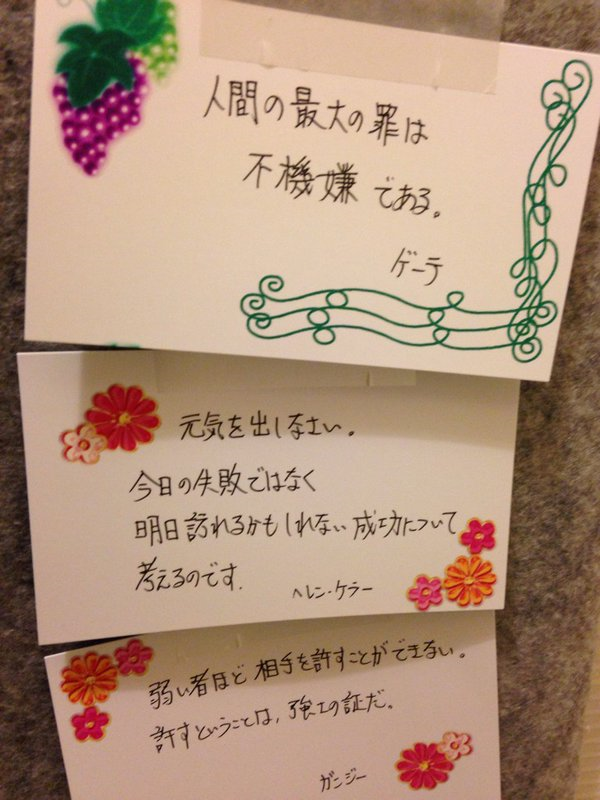 人間の最大の罪は
不機嫌である。
ゲーテ
元気を出しなさい。
今日の失敗ではなく
明日訪れるかもしれない成功について
考えるのです.
ヘレン・ケラー
弱い者ほど相手を許すことができない。
許すということは、強さの証だ。
ガンジー